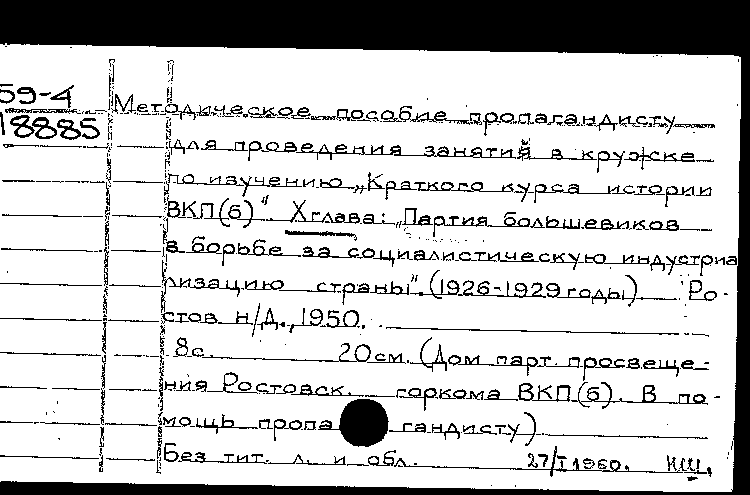 59-4
18885
Методическое пособие пропагандисту
для проведения занятий в кружке
по изучению „Краткого курса истории
ВКП(б)" X глава: „Партия большевиков
в борьбе за социалистическую индустриа
лизацию страны". (1926-1929 годы). Ро-
стов н/Д., 1950.
8с. 20см. (Дом парт. просвеще-
ния Ростовск. горкома ВКП(б). В по-
мощь пропагандисту)
Без тит. л. и обл. 27/I 1960. НШ.